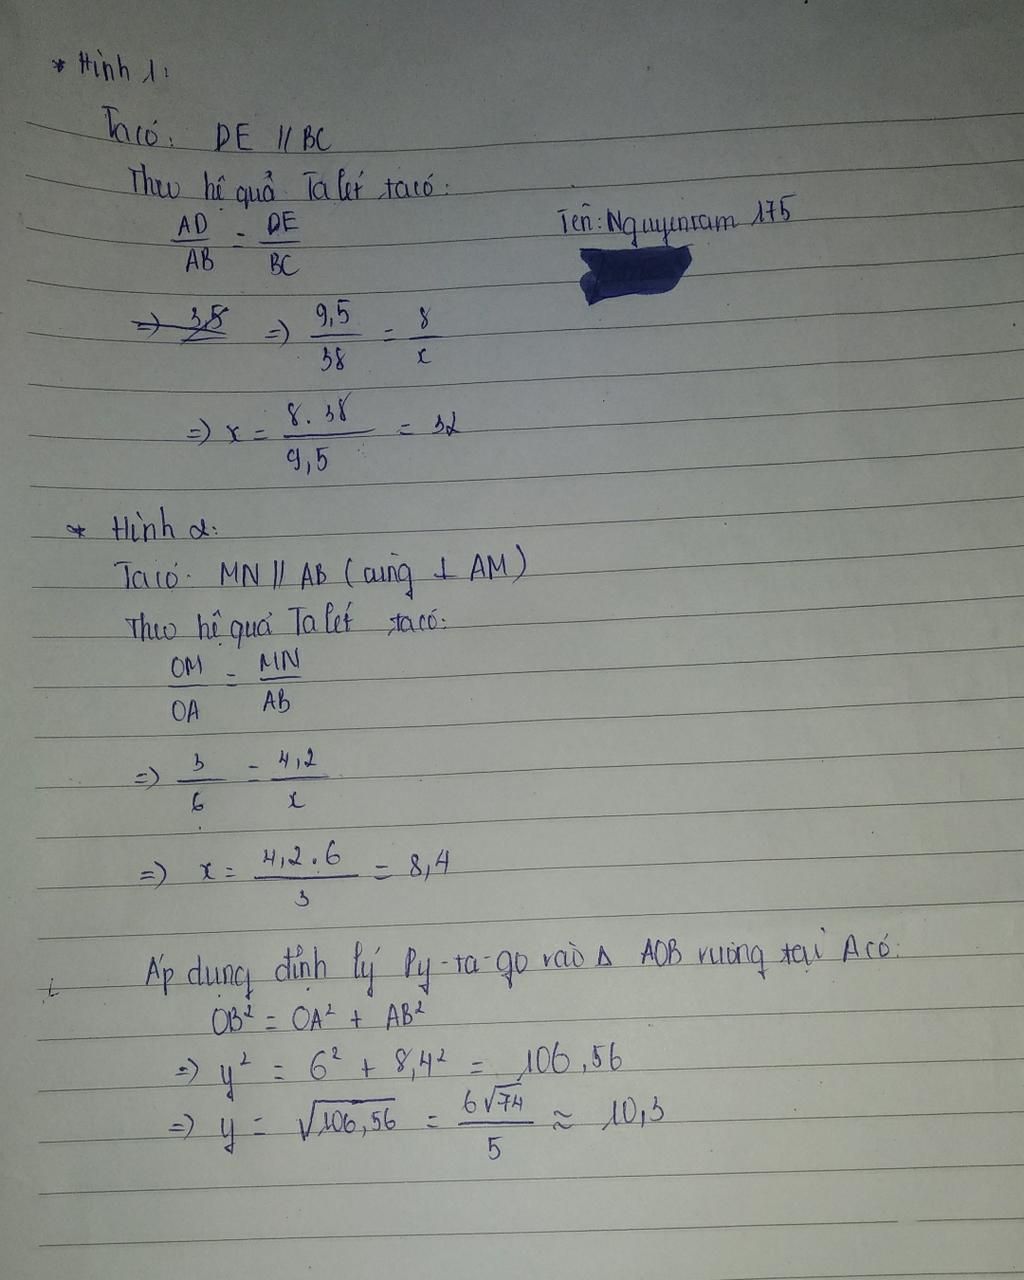 * Hình 1:
Ta có: DE // BC
Theo hệ quả Ta lét ta có:
AD/AB = DE/BC
Tên: Nguyenram 175
=> 3,8 => 9,5/38 = 8/x
=> x = 8.38/9,5 = 32
* Hình 2:
Ta có: MN // AB (cùng ⊥ AM)
Theo hệ quả Ta lét ta có:
OM/OA = MN/AB
=> 3/6 = 4,2/x
=> x = 4,2.6/3 = 8,4
Áp dụng định lý Py-ta-go vào Δ AOB vuông tại A có:
OB² = OA² + AB²
=> y² = 6² + 8,4² = 106,56
=> y = √106,56 = 6√74/5 ≈ 10,3